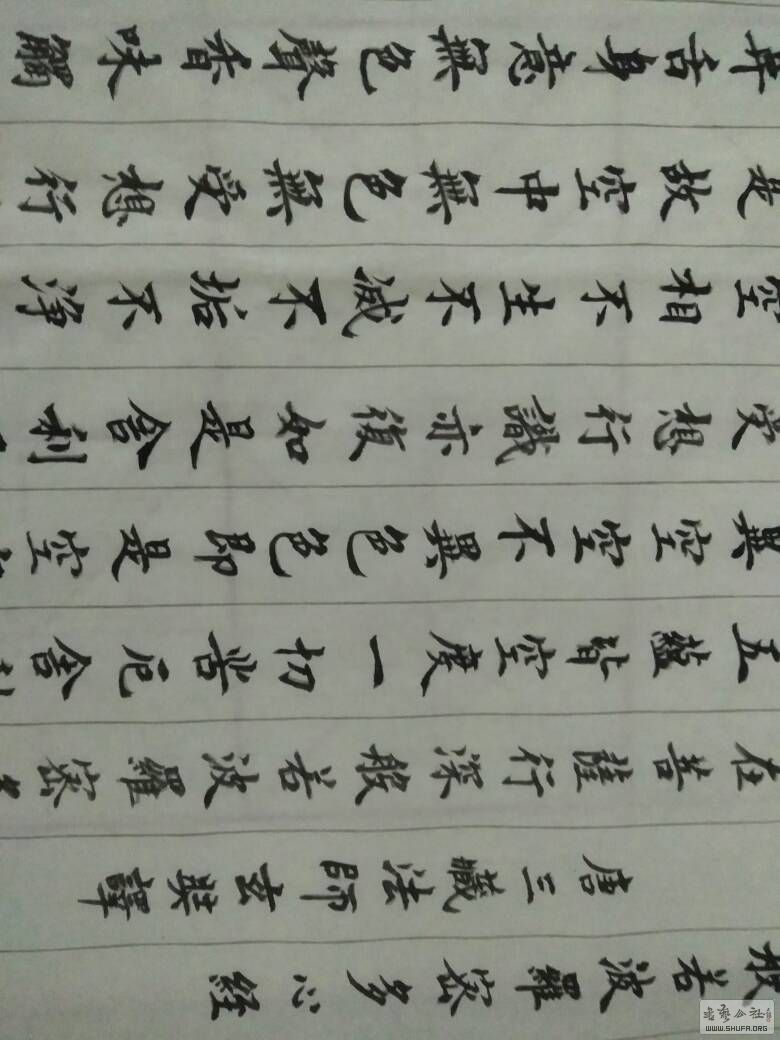 般若波羅密多心經
唐三藏法師玄奘譯
在菩薩行深般若波羅密多
五蘊皆空度一切苦厄舍利
異空空不異色色即是空
受想行識亦復如是舍利
空相不生不滅不垢不淨
是故空中無色無受想行
鼻舌身意無色聲香味觸
书艺公社
WWW.SHUFA.ORG